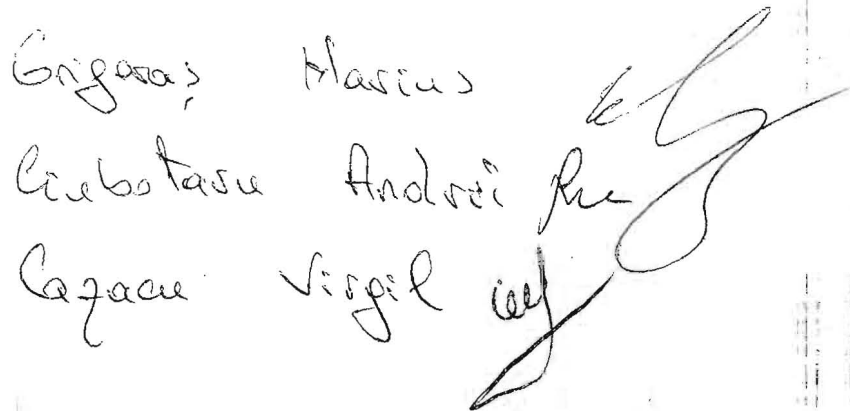 Grigoraș Marius
Ciubotaru Andrei
Cazacu Virgil